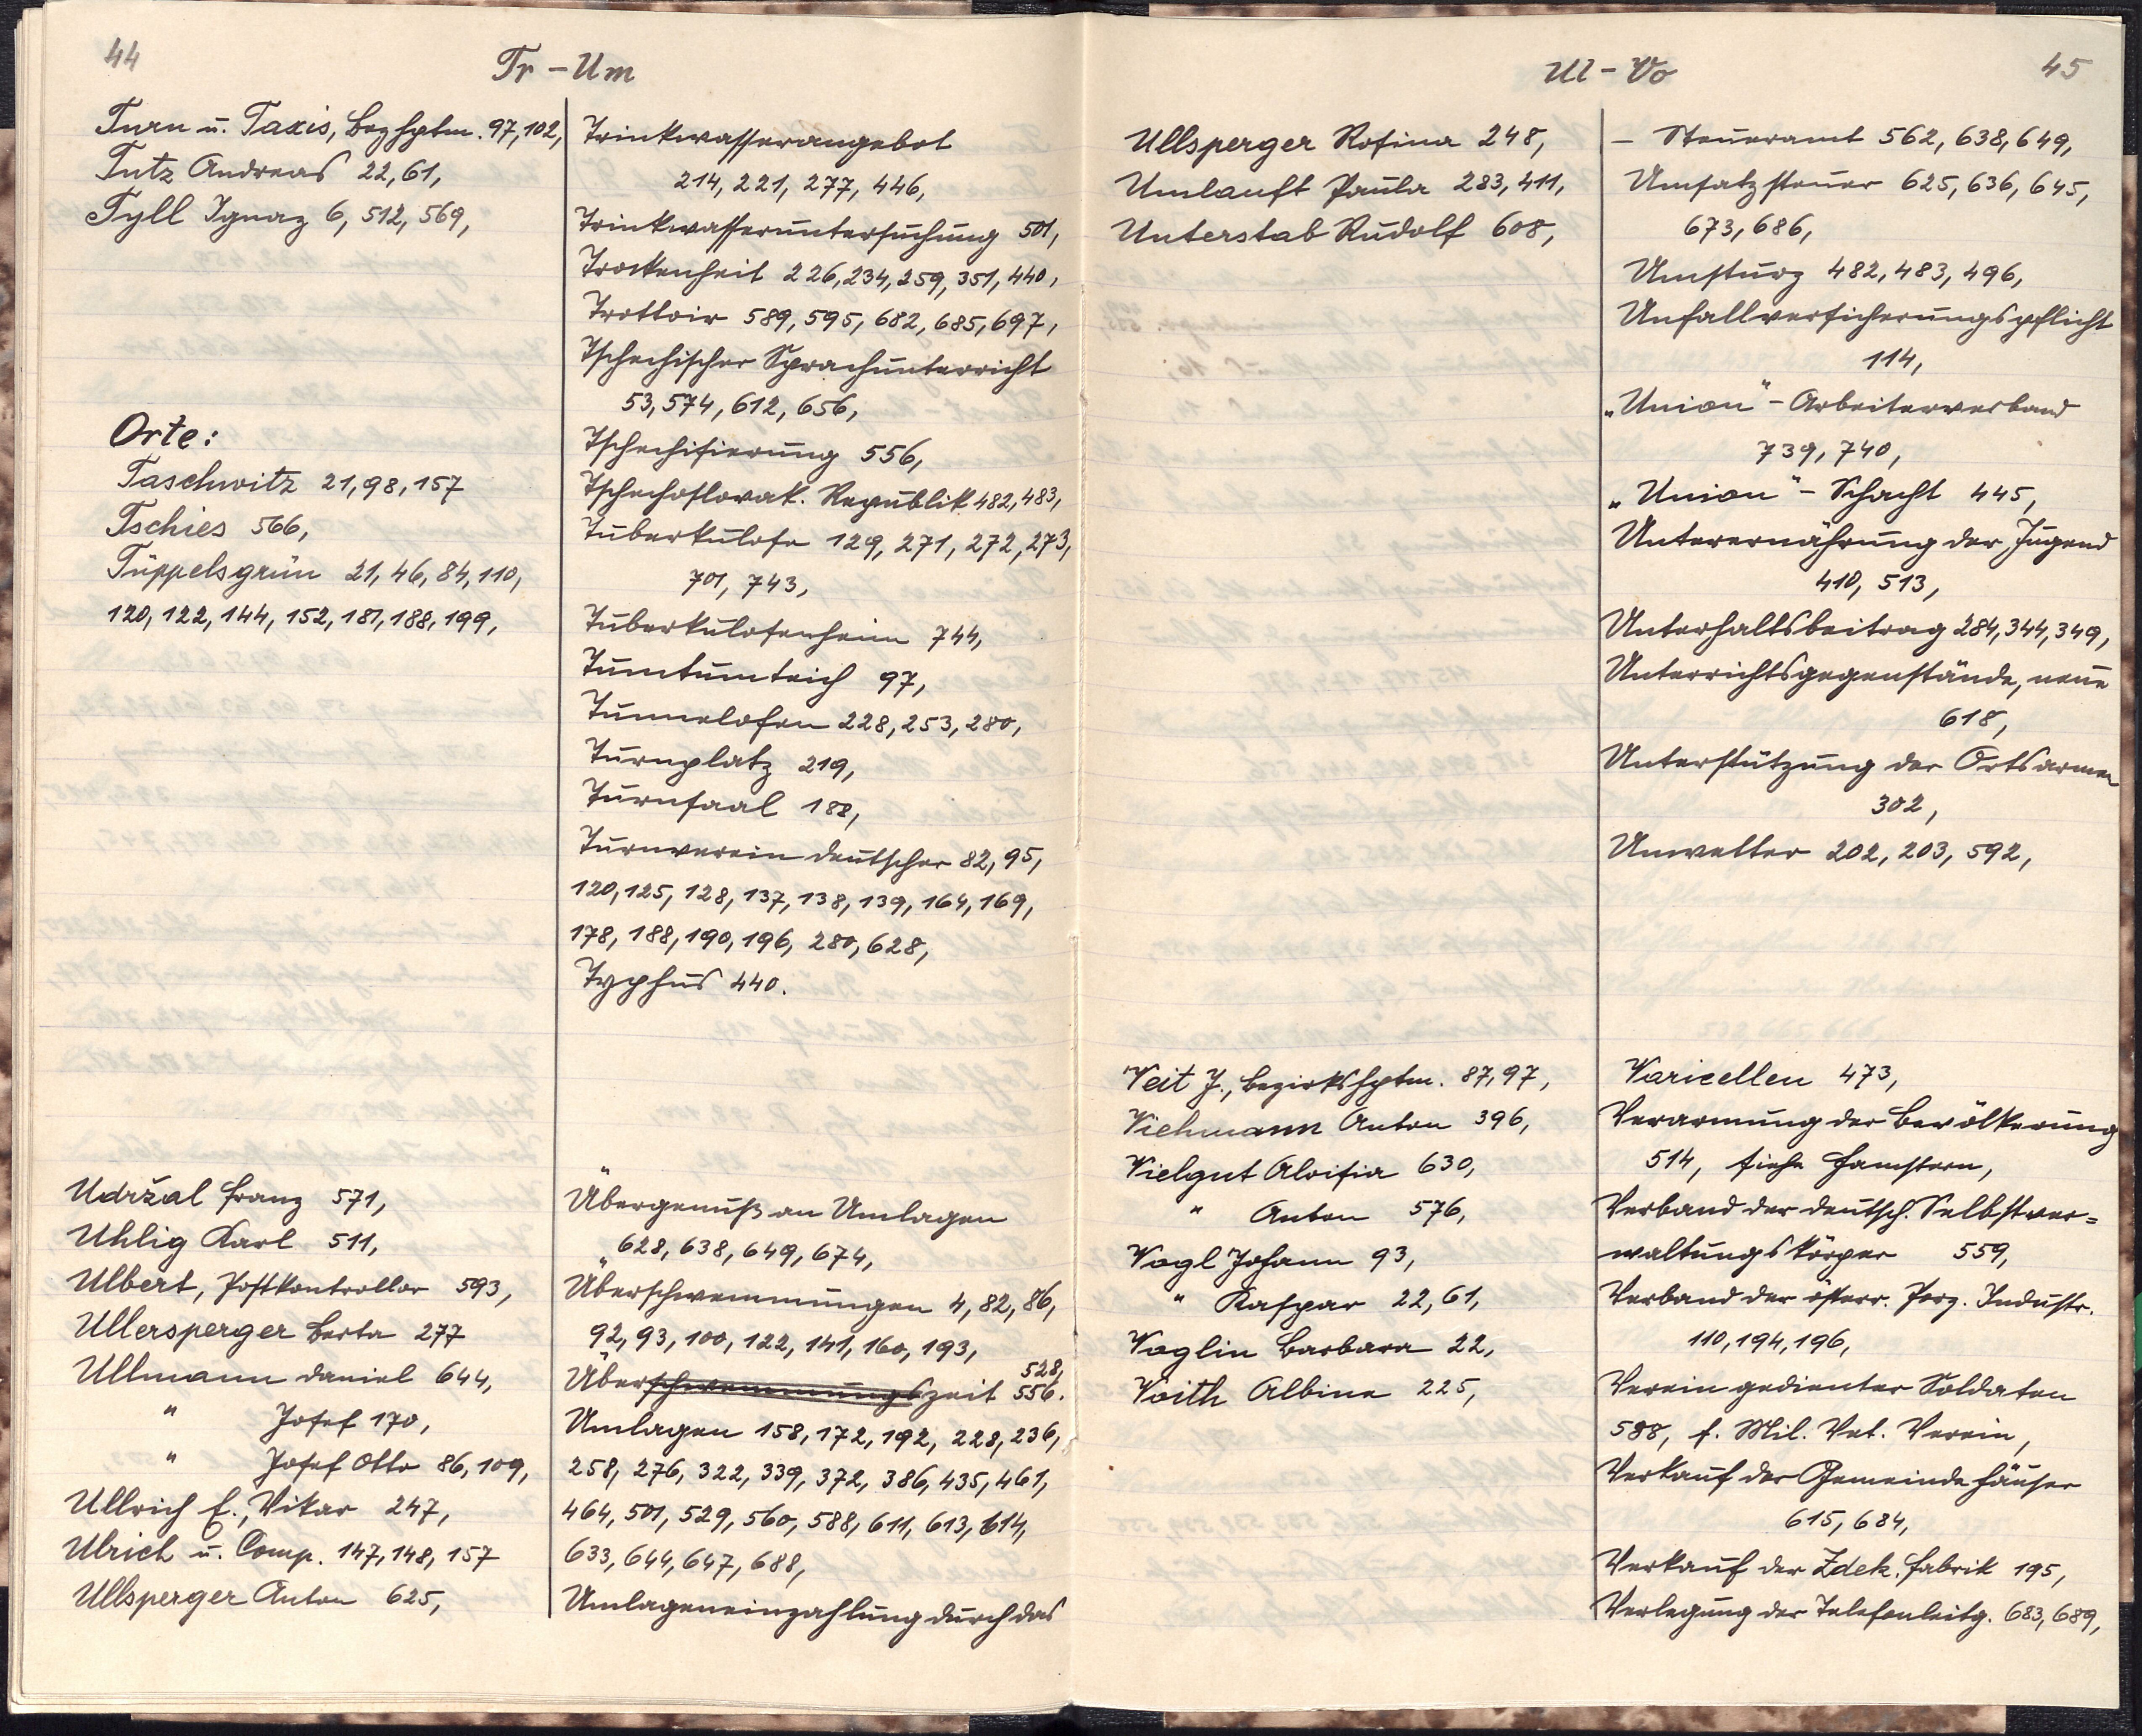 44
Tr – Um
Turn u. Taxis, Bezhptm. 97, 102,
Tutz Andreas 22, 61,
Tyll Ignaz 6, 512, 569,
Orte:
Taschwitz 21, 98, 157
Tschies 566,
Tüppelsgrün 21, 46, 84, 110,
120, 122, 144, 152, 181, 188, 199,
Udržal Franz 571,
Uhlig Karl 511,
Ulbert, Postkontrollor 593,
Ullersperger Berta 277
Ullmann Daniel 644,
" Josef 170,
" Josef Otto 86, 109,
Ullrich E., Vikar 247,
Ulrich u. Comp. 147, 148, 157
Ullsperger Anton 625,
Trinkwasserangebot
214, 221, 277, 446,
Trinkwasseruntersuchung 501,
Trockenheit 226, 234, 259, 351, 440,
Trottoir 589, 595, 682, 685, 697,
Tschechischer Sprachunterricht
53, 574, 612, 656,
Tschechisierung 556,
Tschechoslovak. Republik 482, 483,
Tuberkulose 129, 271, 272, 273,
701, 743,
Tuberkulosenheim 744,
Tumtumteich 97,
Tunnelofen 228, 253, 280,
Turnplatz 219,
Turnsaal 188,
Turnverein deutscher 82, 95,
120, 125, 128, 137, 138, 139, 164, 169,
178, 188, 190, 196, 280, 628,
Typhus 440.
Übergenuß an Umlagen
628, 638, 649, 674,
Überschwemmungen 4, 82, 86,
92, 93, 100, 122, 141, 160, 193,
528,
Überschwemmungszeit 556.
Umlagen 158, 172, 192, 228, 236,
258, 276, 322, 339, 372, 386, 435, 461,
464, 501, 529, 560, 588, 611, 613, 614,
633, 644, 647, 688,
Umlageneinzahlung durch das
Ul – Vo
45
Ullsperger Rosina 248,
Umlauft Paula 283, 411,
Unterstab Rudolf 608,
Veit J., Bezirkshptm. 87, 97,
Viehmann Anton 396,
Vielgut Aloisia 630,
" Anton 576,
Vogl Johann 93,
" Kaspar 22, 61,
Voglin Barbara 22,
Voith Albine 225,
– Steueramt 562, 638, 649,
Umsatzsteuer 625, 636, 645,
673, 686,
Umsturz 482, 483, 496,
Unfallversicherungspflicht
114,
„Union" – Arbeiterverband
739, 740,
„Union" – Schacht 445,
Unterernährung der Jugend
410, 513,
Unterhaltsbeitrag 284, 344, 349,
Unterrichtsgegenstände, neue
618,
Unterstützung der Ortsarmen
302,
Unwetter 202, 203, 592,
Varicellen 473,
Verarmung der Bevölkerung
514, siehe Hamstern,
Verband der deutsch. Selbstver=
waltungskörper 559,
Verband der österr. Porz. Industr.
110, 194, 196,
Verein gedienter Soldaten
588, s. Mil. Vet. Verein,
Verkauf der Gemeindehäuser
615, 684,
Verkauf der Zdek. Fabrik 195,
Verlegung der Telefonleitg. 683, 689,